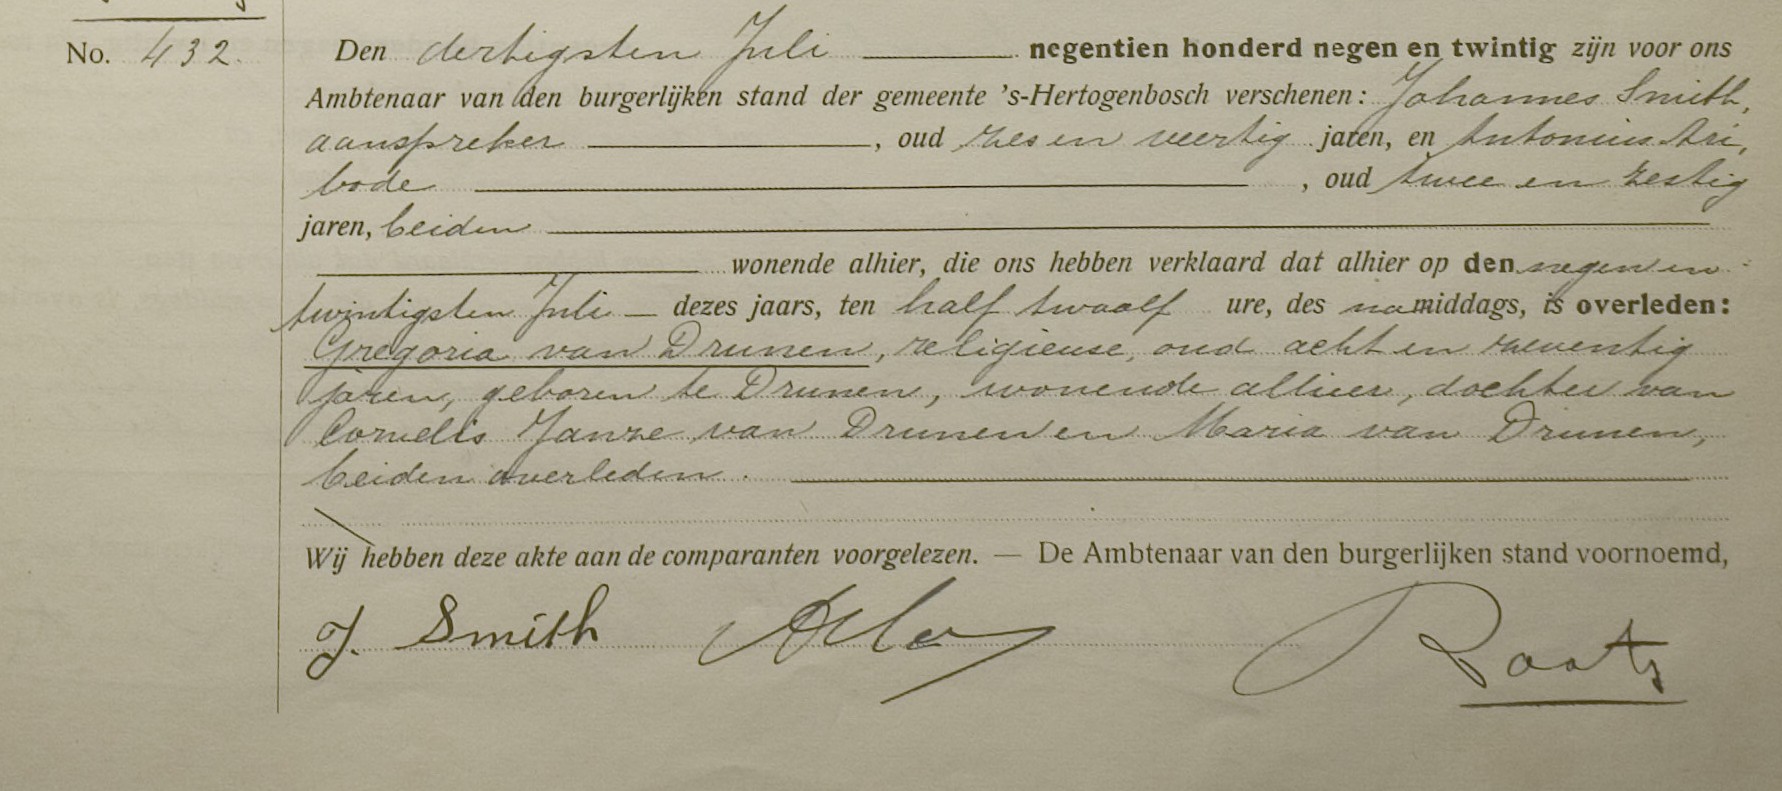 No. 432.
Den dertigsten Juli negentien honderd negen en twintig zijn voor ons
Ambtenaar van den burgerlijken stand der gemeente 's-Hertogenbosch verschenen: Johannes Smith,
aanspreker, oud zes en veertig jaren, en Antonius
bode, oud twee en zestig
jaren, beiden
wonende alhier, die ons hebben verklaard dat alhier op den negen en
twintigsten Juli — dezes jaars, ten half twaalf ure, des namiddags, is overleden:
Gregoria van Drunen, religieuse, oud acht en zeventig
jaren, geboren te Drunen, wonende alhier, dochter van
Cornelis Janze van Drunen en Maria van Drunen,
beiden overleden.
Wij hebben deze akte aan de comparanten voorgelezen. — De Ambtenaar van den burgerlijken stand voornoemd,
J. Smith